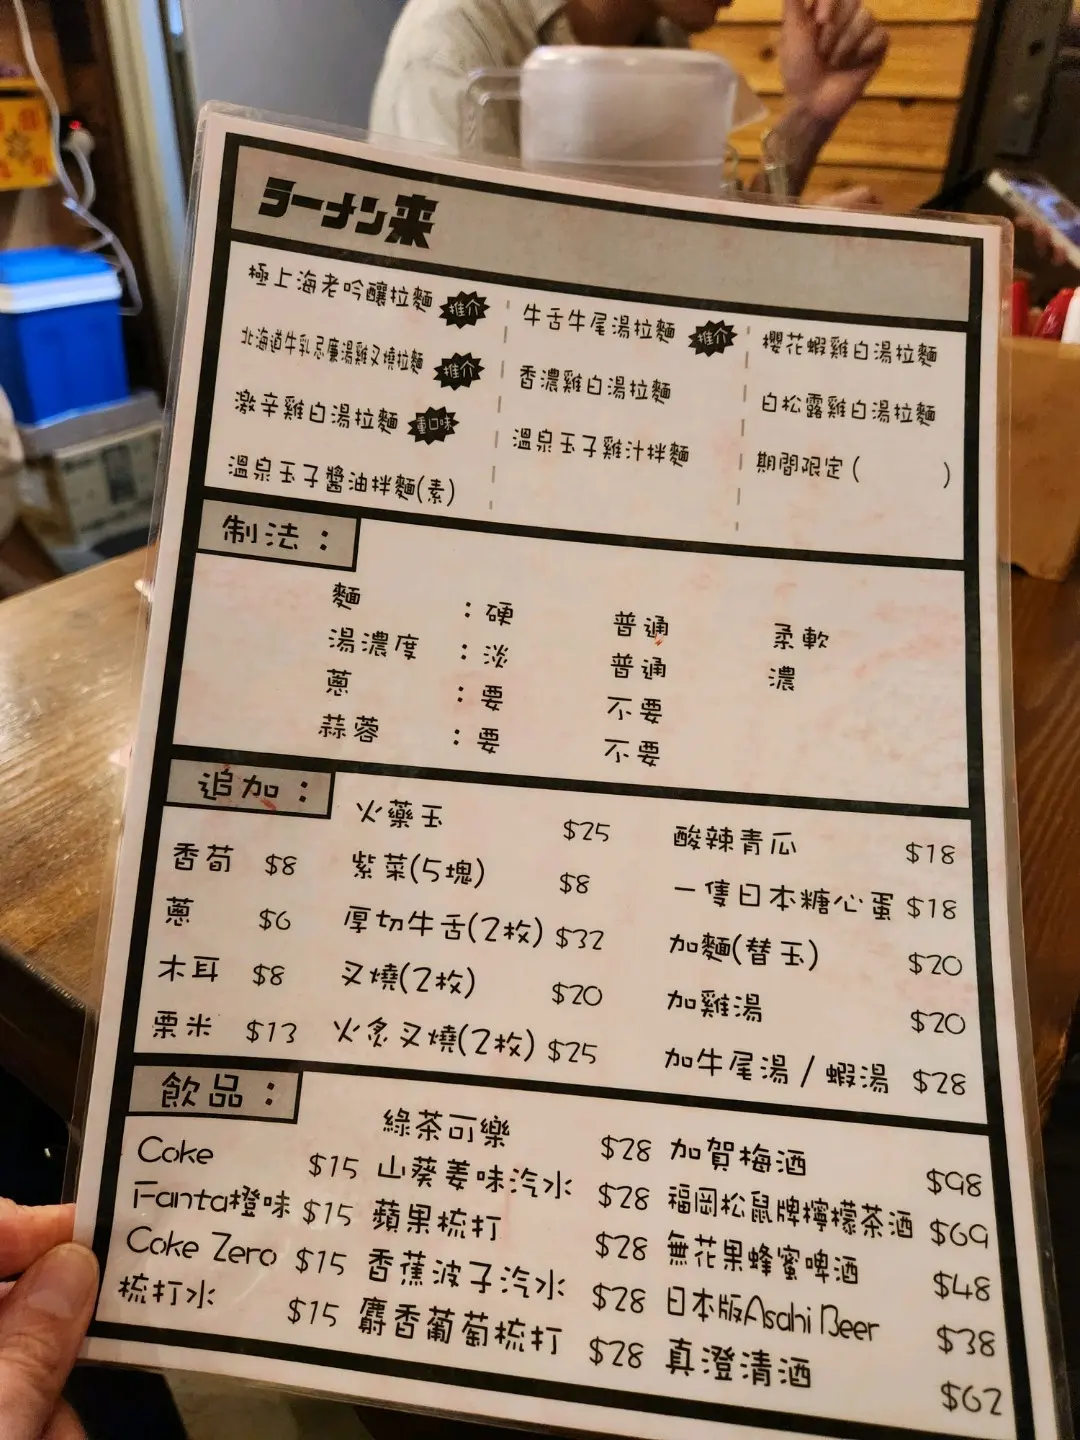 ラーメン来
極上海老吟釀拉麵 推介
北海道牛乳忌廉湯雞叉燒拉麵 推介
激辛雞白湯拉麵 重口味
溫泉玉子醬油拌麵(素)
牛舌牛尾湯拉麵 推介
香濃雞白湯拉麵
溫泉玉子雞汁拌麵
櫻花蝦雞白湯拉麵
白松露雞白湯拉麵
期間限定( )
制法：
麵 ：硬 普通 柔軟
湯濃度 ：淡 普通 濃
蔥 ：要 不要
蒜蓉 ：要 不要
追加：
香荀 $8
蔥 $6
木耳 $8
粟米 $13
火藥玉 $25
紫菜(5塊) $8
厚切牛舌(2枚) $32
叉燒(2枚) $20
火炙叉燒(2枚) $25
酸辣青瓜 $18
一隻日本糖心蛋 $18
加麵(替玉) $20
加雞湯 $20
加牛尾湯/蝦湯 $28
飲品：
Coke $15
Fanta橙味 $15
Coke Zero $15
梳打水 $15
綠茶可樂 $28
山葵姜味汽水 $28
蘋果梳打 $28
香蕉波子汽水 $28
麝香葡萄梳打 $28
加賀梅酒 $98
福岡松鼠牌檸檬茶酒 $69
無花果蜂蜜啤酒 $48
日本版Asahi Beer $38
真澄清酒 $62